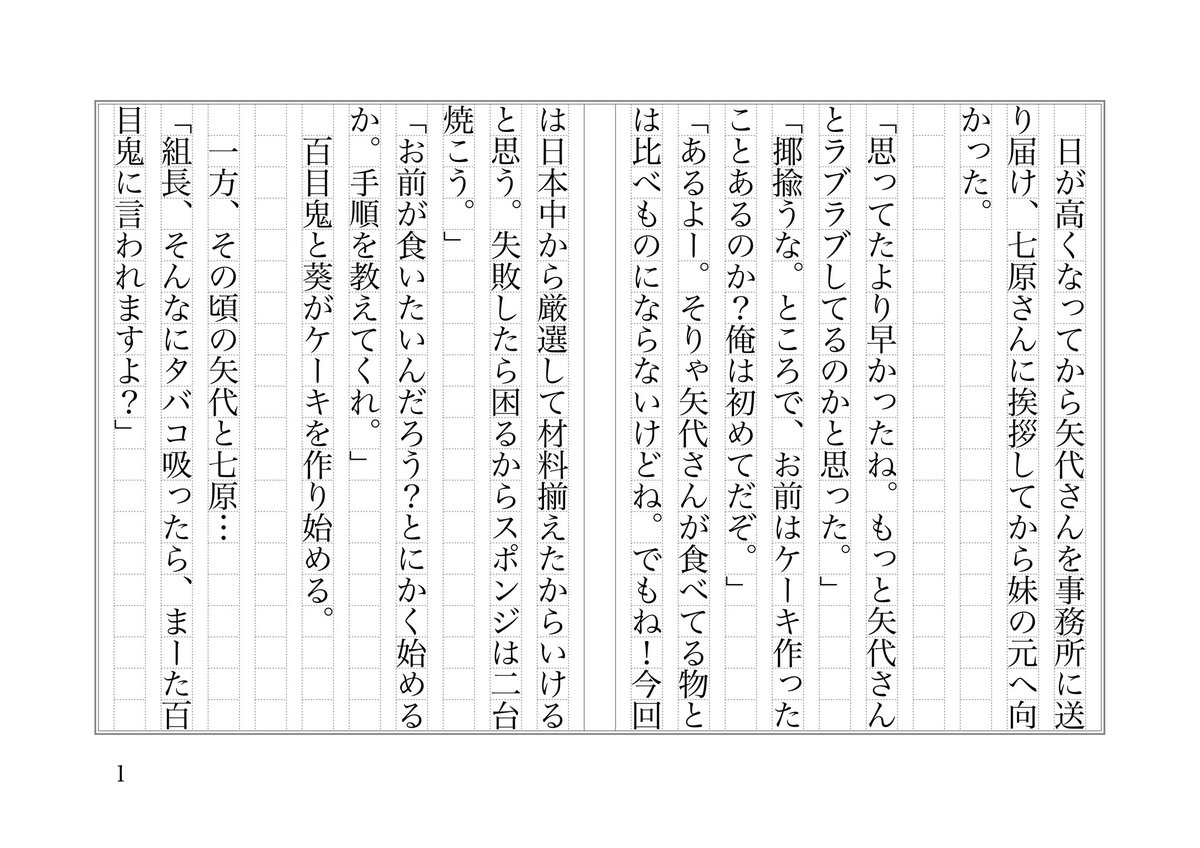 日が高くなってから矢代さんを事務所に送
り届け、七原さんに挨拶してから妹の元へ向
かった。
「思ってたより早かったね。もっと矢代さん
とラブラブしてるのかと思った。」
「揶揄うな。ところで、お前はケーキ作った
ことあるのか？俺は初めてだぞ。」
「あるよー。そりゃ矢代さんが食べてる物と
は比べものにならないけどね。でもね！今回
は日本中から厳選して材料揃えたからいける
と思う。失敗したら困るからスポンジは二台
焼こう。」
「お前が食いたいんだろう？とにかく始める
か。手順を教えてくれ。」
　百目鬼と葵がケーキを作り始める。
　一方、その頃の矢代と七原…
「組長、そんなにタバコ吸ったら、まーた百
目鬼に言われますよ？」
1